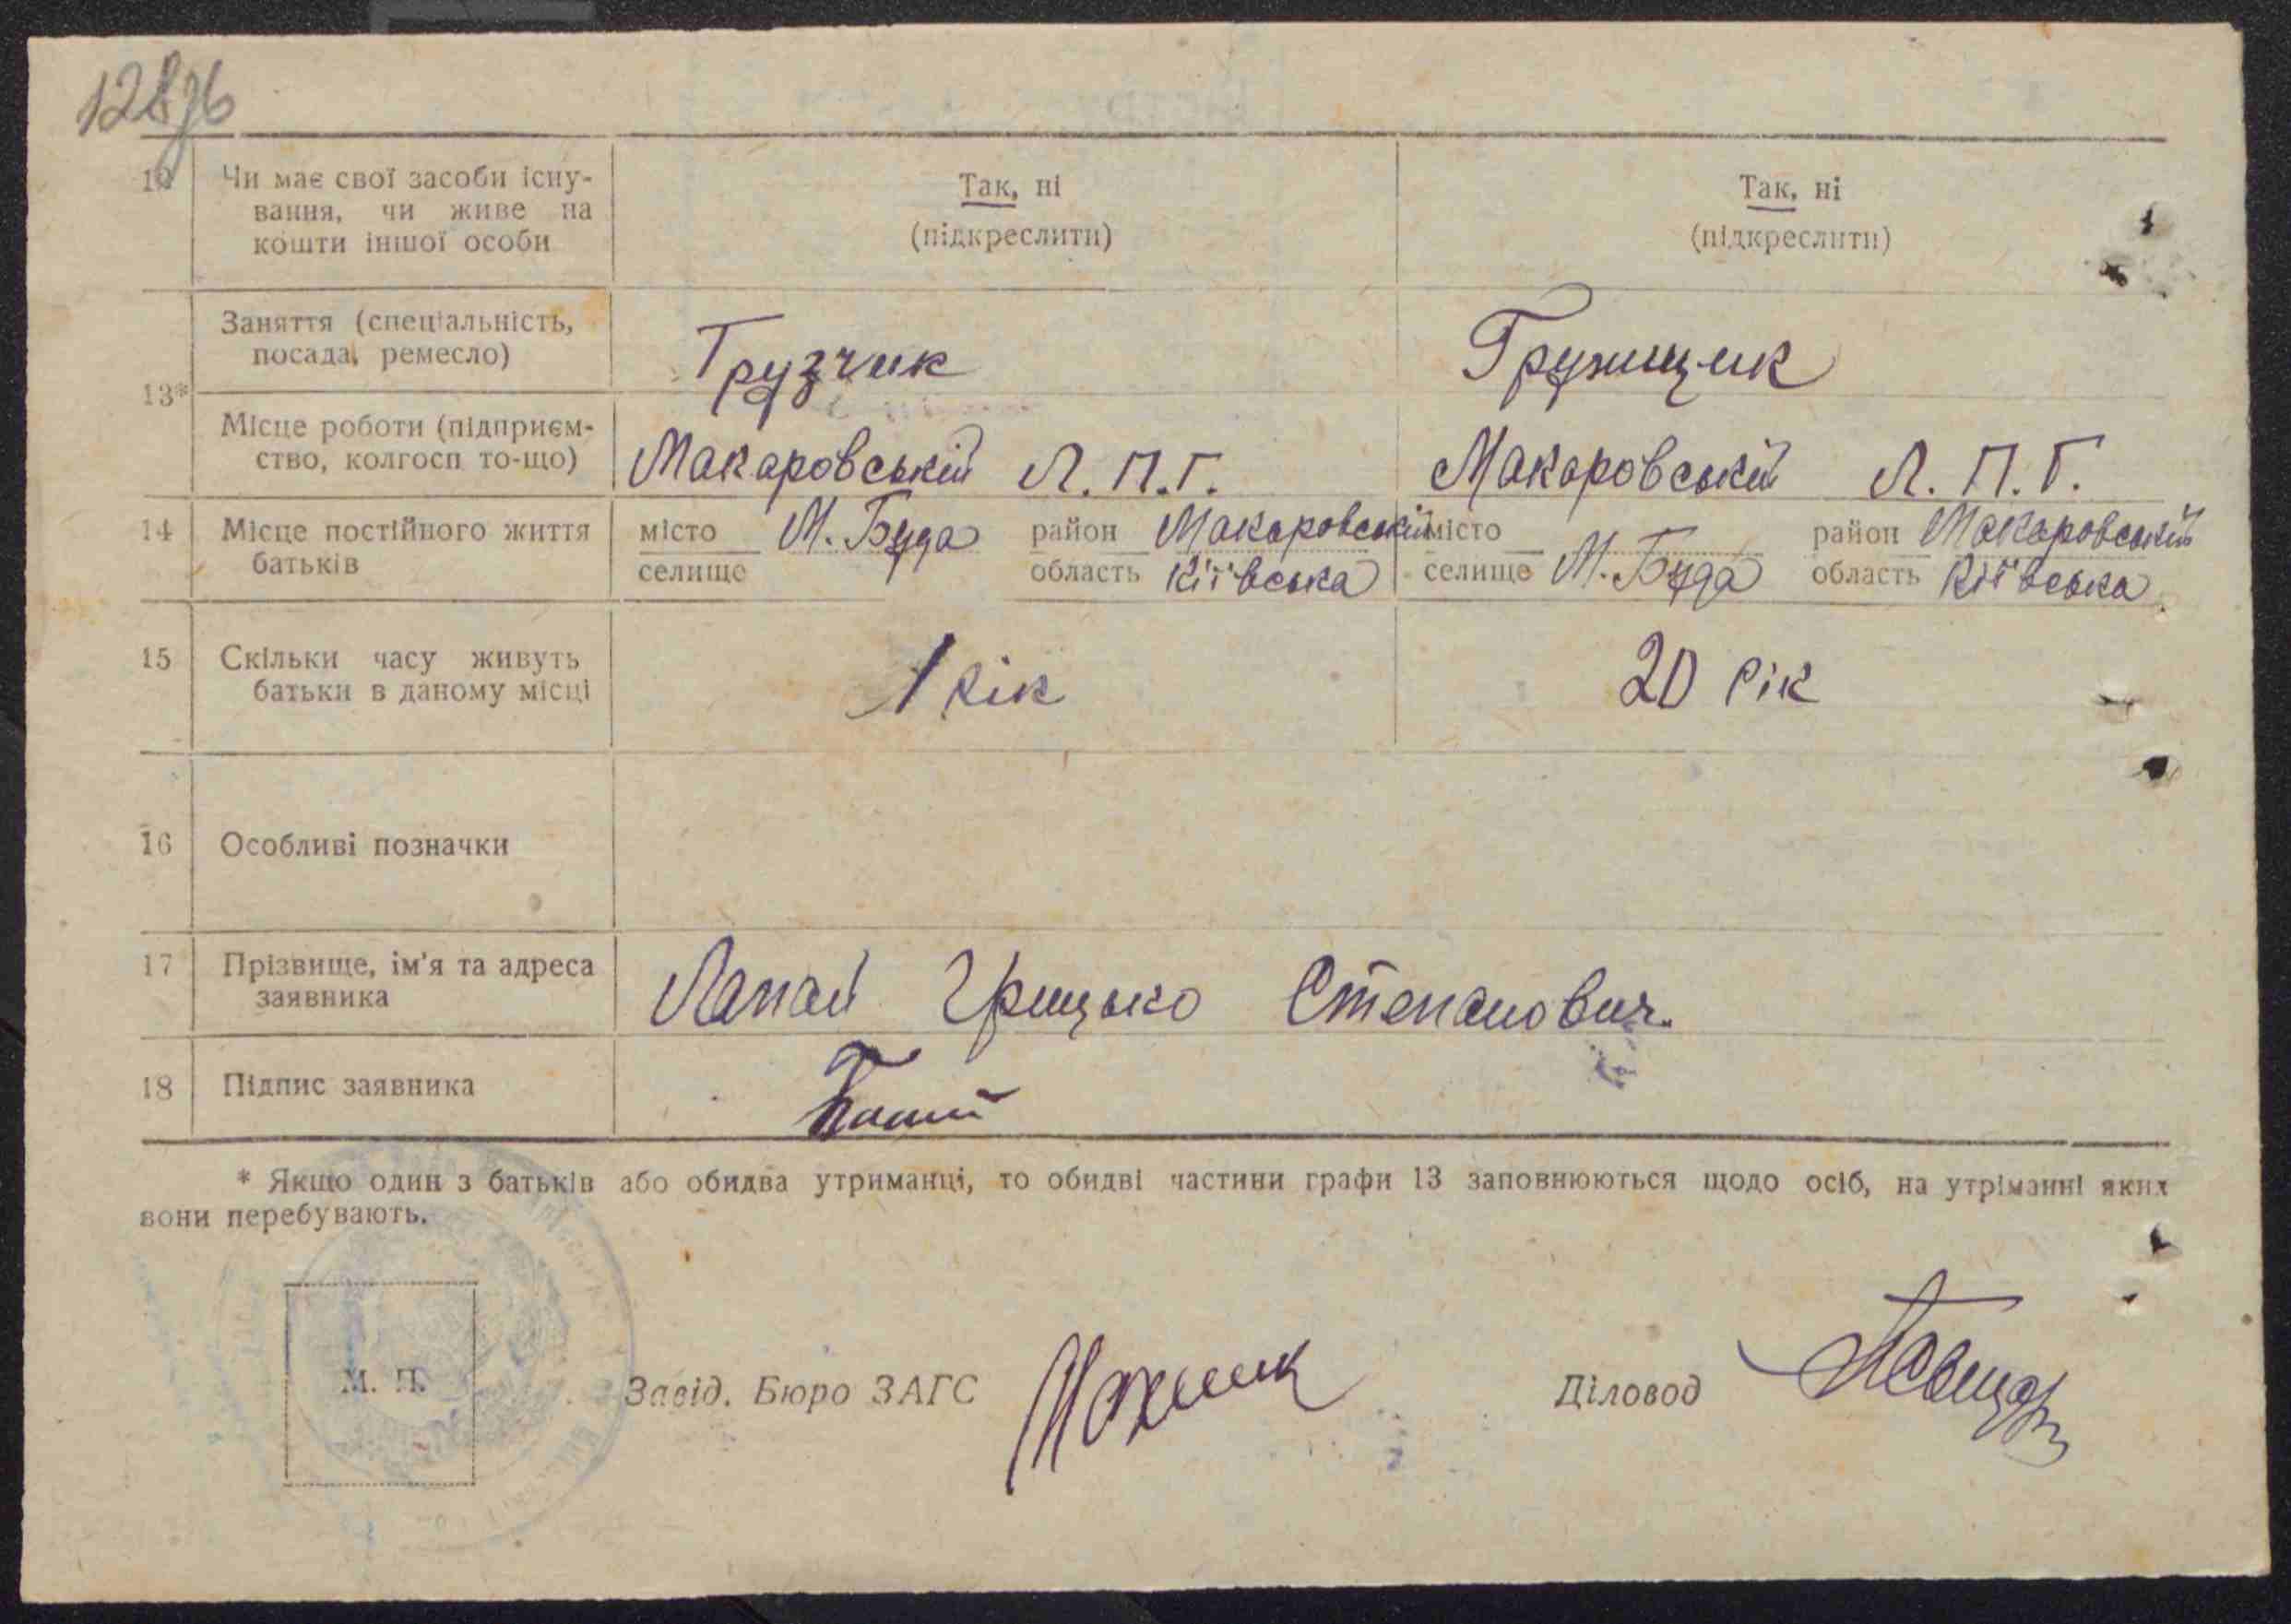 12876
12 Чи має свої засоби існу- Так, ні Так, ні
вання, чи живе на (підкреслити) (підкреслити)
кошти іншої особи
13* Заняття (спеціальність, Грузчик Грузищик
посада, ремесло)
Місце роботи (підприєм- Макаровській Л.П.Г. Макаровській Л.П.Г.
ство, колгосп то-що)
14 Місце постійного життя місто М. Буда район Макаровській місто район Макаровській
батьків селище область Кіївська селище М. Буда область Кіївська
15 Скільки часу живуть 1 рік 20 рік
батьки в даному місці
16 Особливі позначки
17 Прізвище, ім'я та адреса Лапай Грицько Степанович.
заявника
18 Підпис заявника
* Якщо один з батьків або обидва утриманці, то обидві частини графи 13 заповнюються щодо осіб, на утріманні яких
вони перебувають.
М. П. Завід. Бюро ЗАГС Діловод